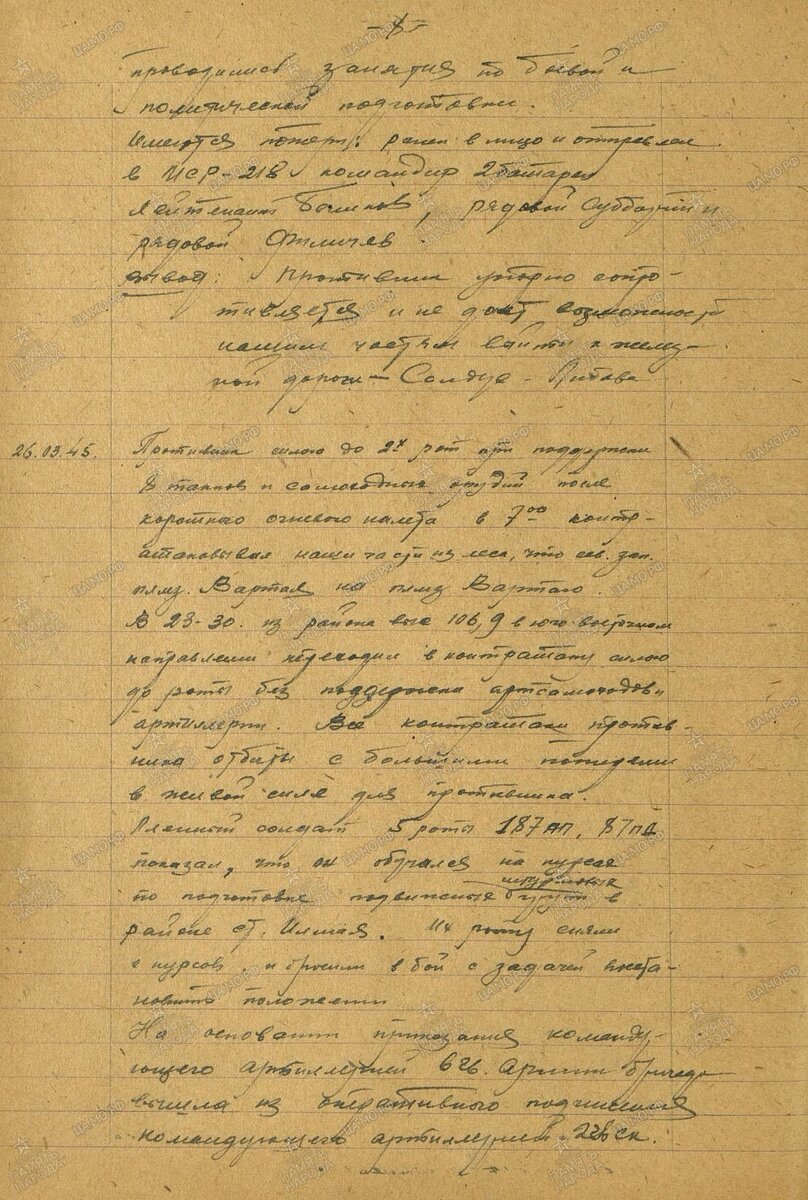 проводились занятия по боевой и
политической подготовки.
Имеются потери: ранен в лицо и отправлен
в ИСР-218 командир 2 батареи
лейтенант , рядовой Субботин и
рядовой Филичев
Вывод: Противник упорно сопро-
тивляется и не дает возможности
нашим частям выйти к желез-
ной дороги - Салдус - Литава
26.03.45. Противник силою до 2х рот при поддержки
8 танков и самоходных орудий после
короткого огневого налета в 7 00 контр-
атаковывал наши части из леса, что сев. зап.
на
В 23-30. из района выс 106,9 в юго восточном
направлении переходил в контратаку силою
до роты без поддержки артсамоходов и
артиллерии. Все контратаки против-
ника отбиты с большими потерями
в живой силе для противника.
Пленный солдат 5 роты 187 ПП, 87 ПД
показал, что он обучался на курсах
штурмовые
по подготовке подвижных групп в
районе ст. Илмая. Их роту сняли
с курсов и бросили в бой с задачей восста-
новить положении
На основании приказания команду-
ющего артиллерией 6 гв. Армии бригада
вышла из оперативного подчинения
командующего артиллерией 22 гв ск.
ПАМЯТЬ НАРОДА
ЦАМО.РФ